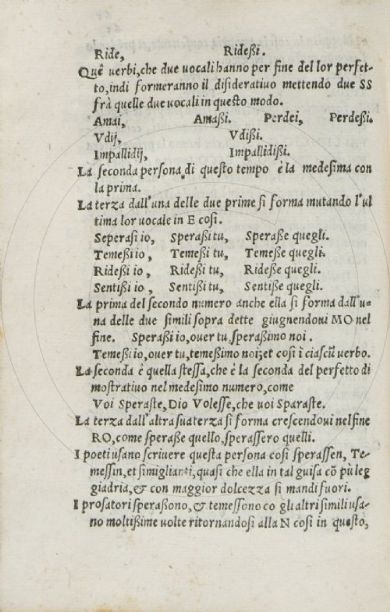 Ride, Rideßi.
Quê verbi,che due vocali hanno per fine del lor perfet-
to,indi formeranno il disiderativo mettendo due SS
frà quelle due vocali in questo modo.
Amai, Amaßi. Perdei, Perdeßi.
Vdij, Vdißi.
Impallidij, Impallidißi.
La seconda persona di questo tempo è la medesima con
la prima.
La terza dall'una delle due prime si forma mutando l'ul
tima lor vocale in E cosi.
Speraßi io, Speraßi tu, Speraße quegli.
Temeßi io, Temeßi tu, Temeße quegli.
Rideßi io, Rideßi tu, Rideße quegli.
Sentißi io, Sentißi tu, Sentiße quegli.
La prima del secondo numero anche ella si forma dall'u-
na delle due simili sopra dette giugnendoui MO nel
fine. Speraßi io,ouer tu,speraßimo noi.
Temeßi io,ouer tu,temeßimo noi;et cosi i ciascũ verbo.
La seconda è quella stessa,che è la seconda del perfetto di
mostratiuo nel medesimo numero,come
Voi Speraste,Dio Volesse,che voi Sparaste.
La terza dall'altra sua terza si forma crescendoui nel fine
RO,come speraße quello,sperassero quelli.
I poeti usano scriuere questa persona cosi sperassen, Te-
messin,et simiglianti,quasi che ella in tal guisa cõ piu leg
giadria,& con maggior dolcezza si mandi fuori.
I prosatori speraßono,& temessono co gli altri simili usa-
no moltißime volte ritornandosi alla N cosi in questo,